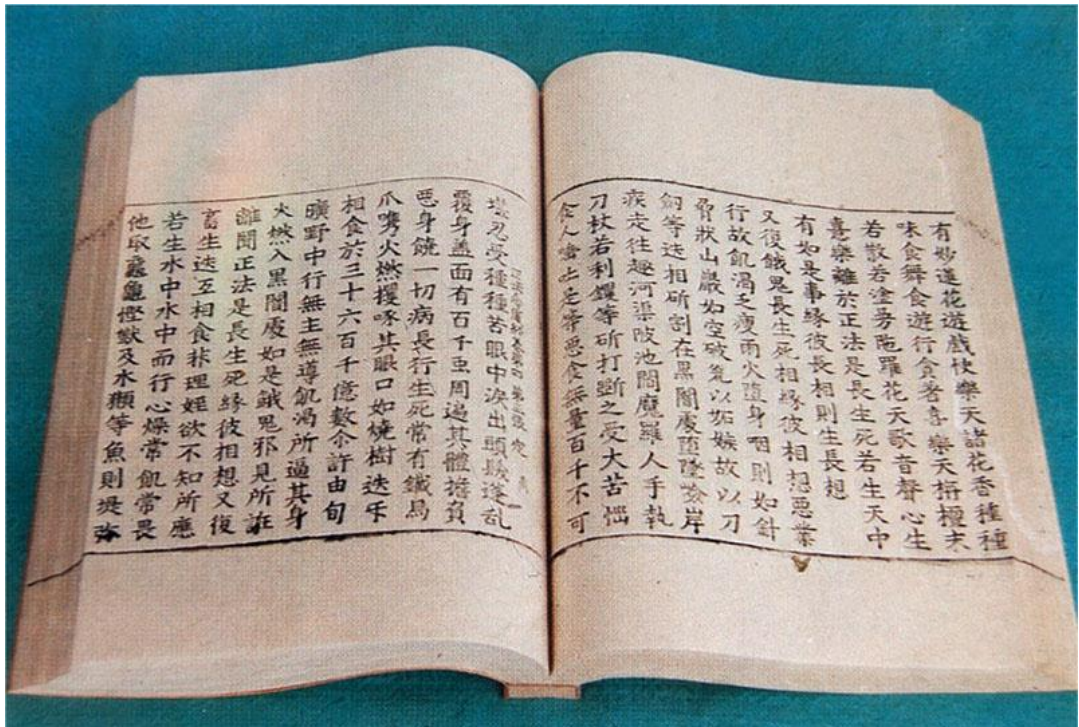 有妙蓮花遊戲快樂天諸花香種種
味食舞食遊行食者喜樂天栴檀末
若散若塗曼陁羅花天歌音聲心生
喜樂離於正法是長生死若生天中
有如是事緣彼長相則生長想
又復餓鬼長生死相緣彼相想惡業
行故飢渴乏瘦雨火墮身咽則如針
脅狀山巖如空破瓮以妬嫉故以刀
劒等迭相斫割在黑闇處墮墜嶮岸
疾走往趣河渠陂池閻魔羅人手執
刀杖若利钁等斫打斷之受大苦惱
食人等惡食無量百千不可
堪忍受種種苦眼中淚出頭髮蓬乱
覆身盖面有百千虫周遍其體擔負
惡身饒一切病長行生死常有鐵烏
爪嘴火燃攫啄其眼口如燒樹迭互
相食於三十六百千億數尒許由旬
曠野中行無主無導飢渴所逼其身
火燃入黑闇處如是餓鬼邪見所誑
離聞正法是長生死緣彼相想又復
畜生迭互相食非理婬欲不知所應
若生水中水中而行心燥常飢常畏
他取黿龜慳獸及水獺等魚則堤弥